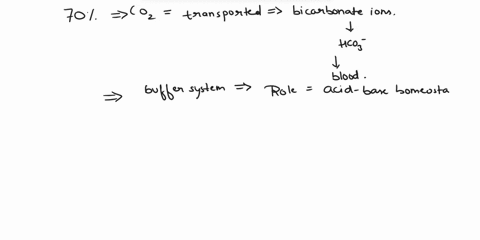 70% ⇒ CO₂ = transported ⇒ bicarbonate ions.
↓
HCO₃⁻
↓
blood.
⇒ buffer system ⇒ Role = acid-base homeosta